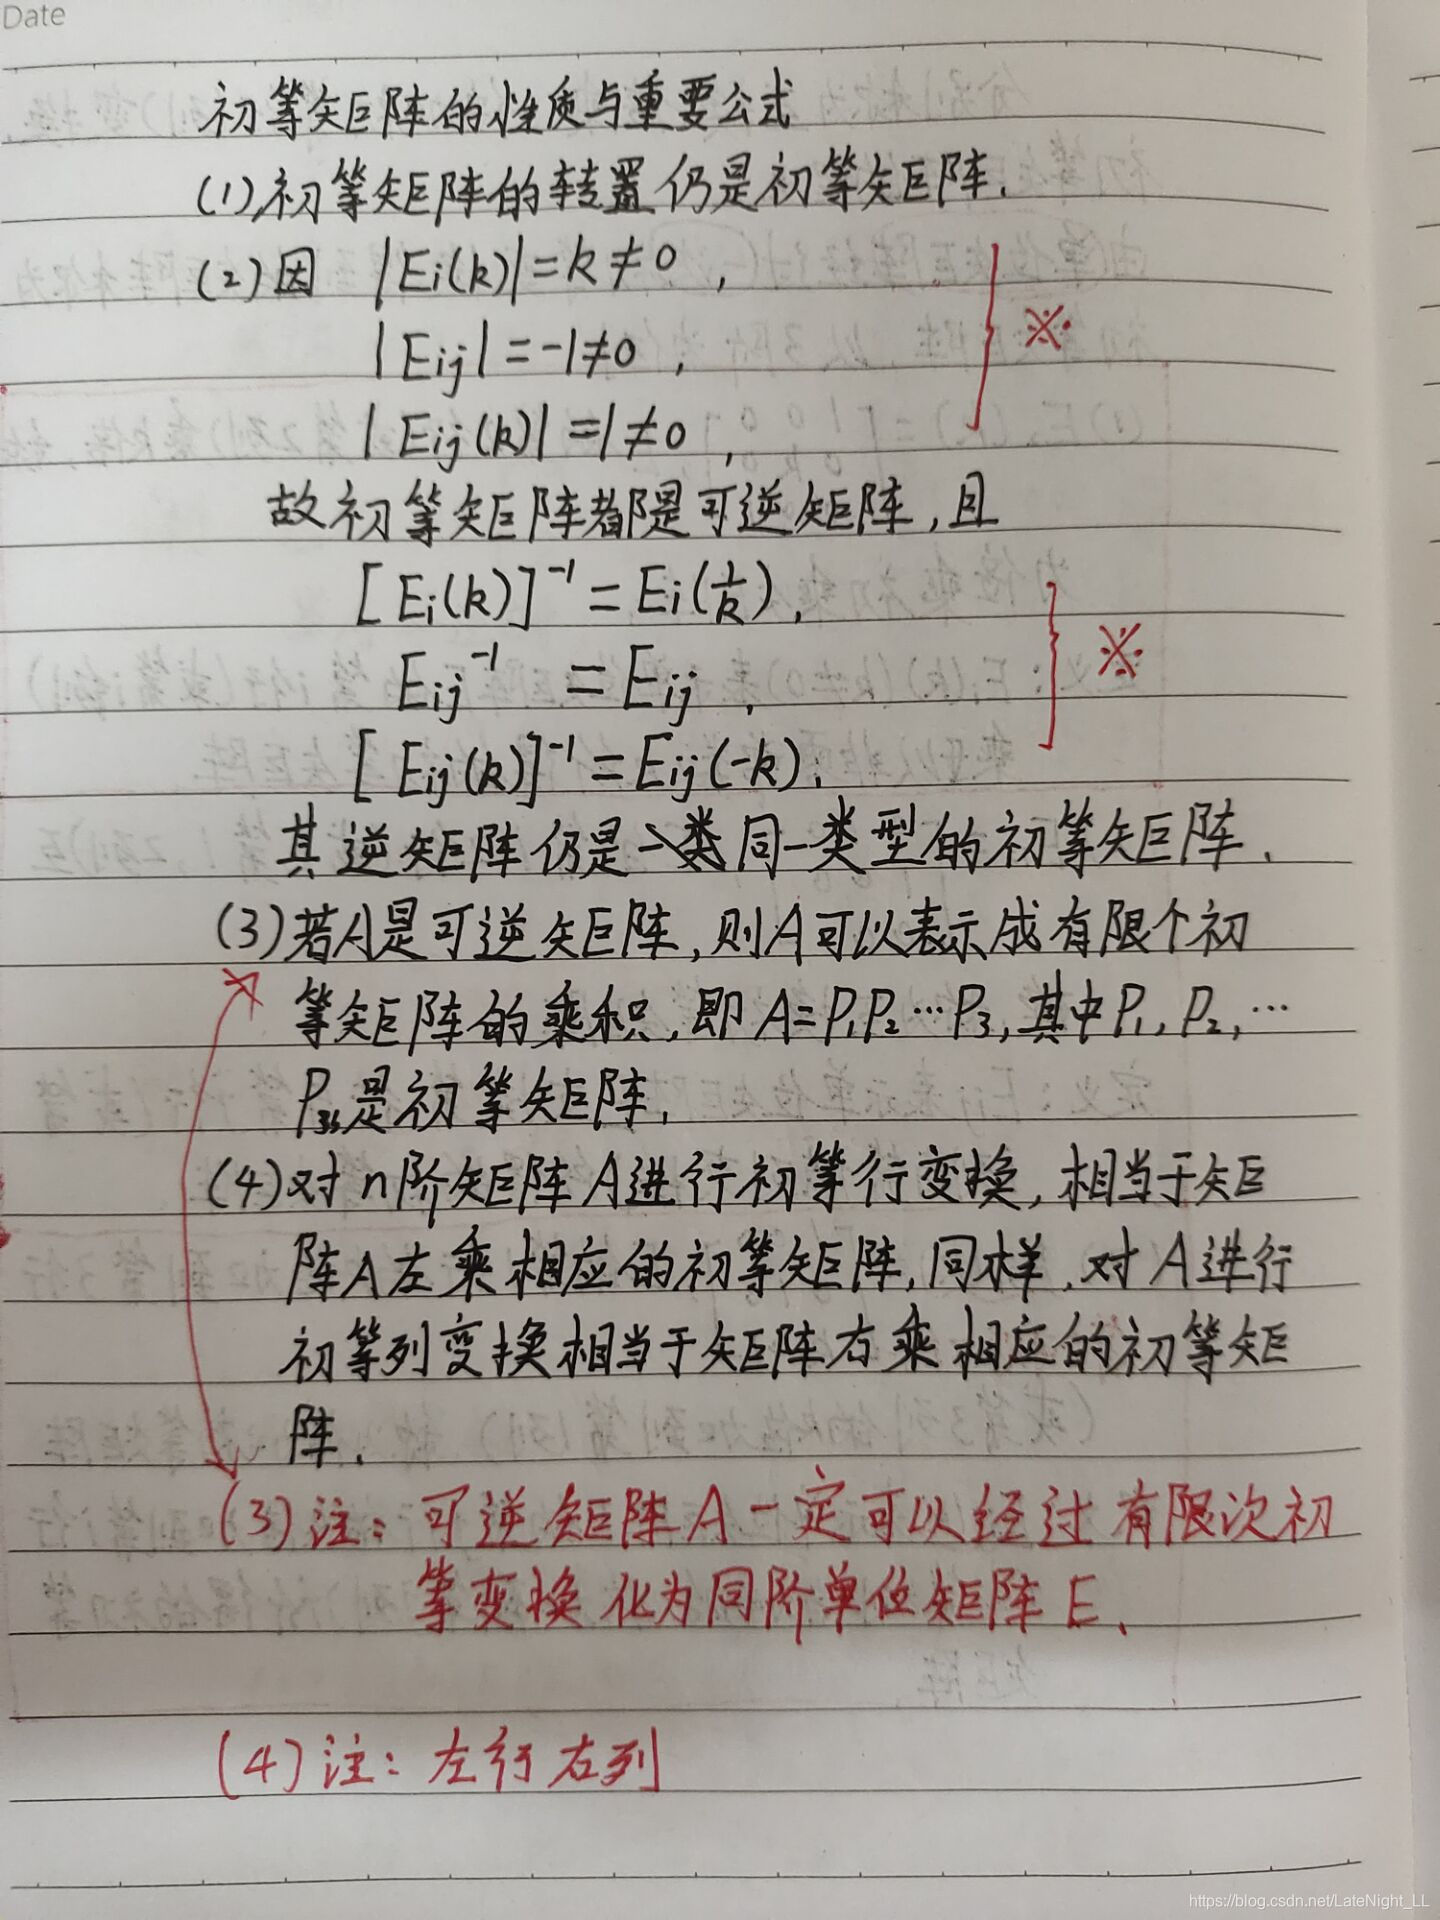 Date
初等矩阵的性质与重要公式
(1)初等矩阵的转置仍是初等矩阵.
(2)因 |Ei(k)|=k≠0,
|Eij|=-1≠0,
|Eij(k)|=1≠0,
故初等矩阵都是可逆矩阵,且
[Ei(k)]⁻¹=Ei(1/k),
Eij⁻¹=Eij,
[Eij(k)]⁻¹=Eij(-k).
※
※
其逆矩阵仍是同一类型的初等矩阵.
(3)若A是可逆矩阵,则A可以表示成有限个初
等矩阵的乘积,即A=P₁P₂…P₃,其中P₁,P₂,…
P是初等矩阵.
(4)对n阶矩阵A进行初等行变换,相当于矩
阵A左乘相应的初等矩阵,同样,对A进行
初等列变换相当于矩阵右乘相应的初等矩
阵.
(3)注:可逆矩阵A一定可以经过有限次初
等变换化为同阶单位矩阵E.
(4)注:左行右列
https://blog.csdn.net/LateNight_LL